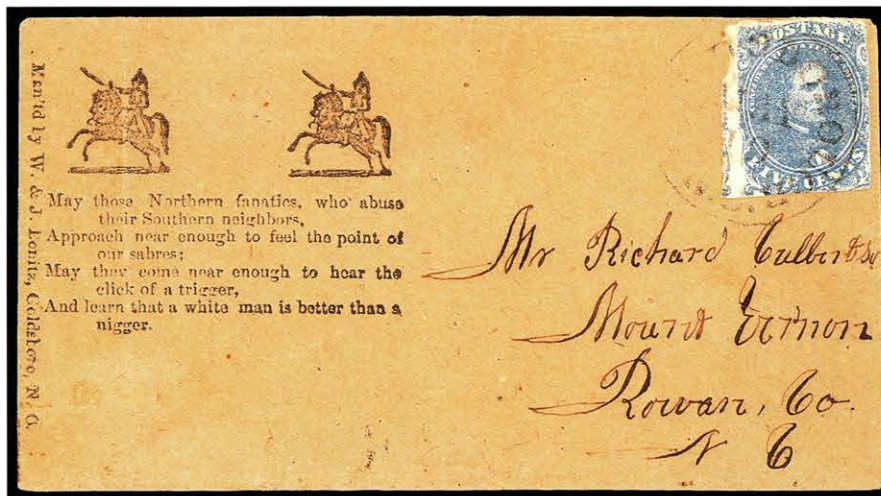 Man'fd by W. & J. Bonitz, Goldsboro, N. C.
May those Northern fanatics, who abuse
their Southern neighbors,
Approach near enough to feel the point of
our sabres;
May they come near enough to hear the
click of a trigger,
And learn that a white man is better than a
nigger.
POSTAGE
FIVE CENTS
Mr Richard
Mount Vernon
Rowan, Co.
N C